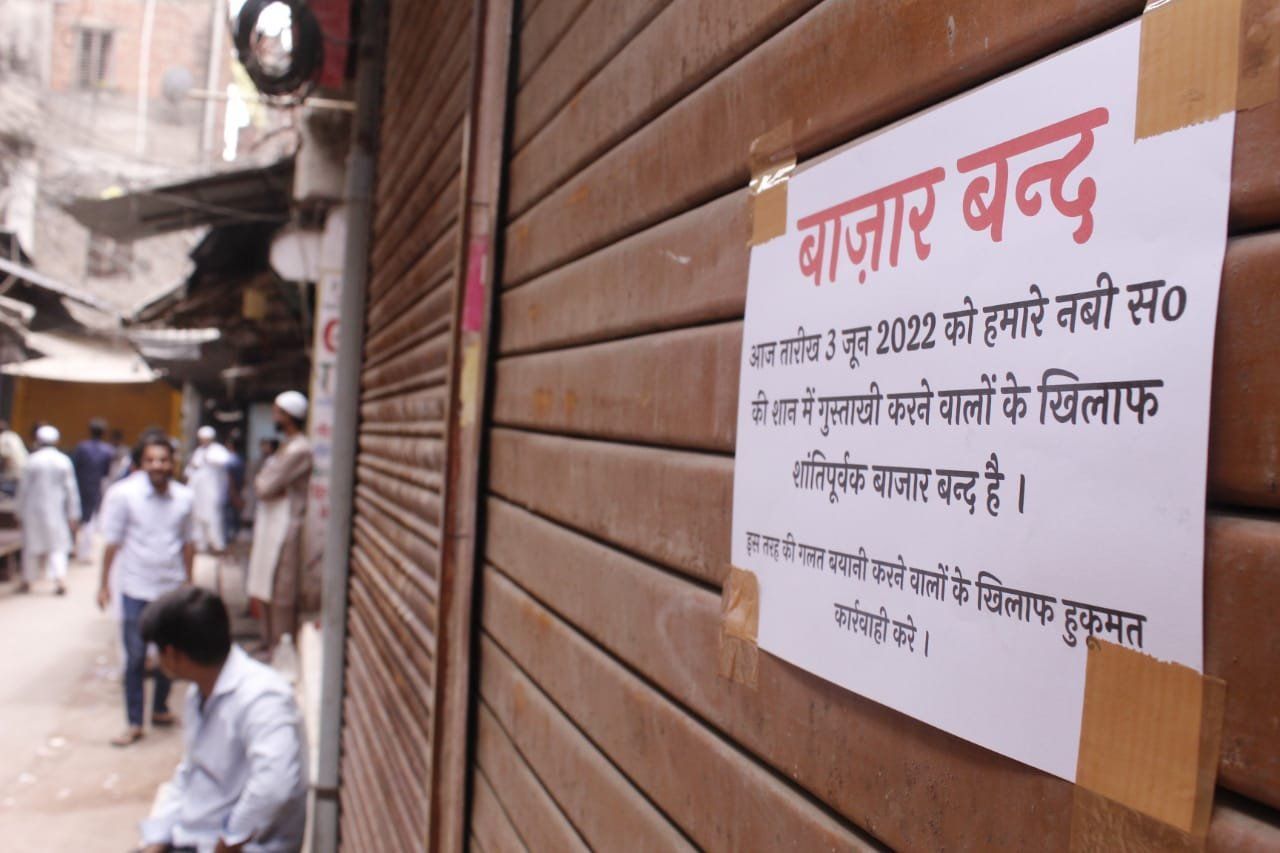 बाज़ार बन्द
आज तारीख 3 जून 2022 को हमारे नबी स0
की शान में गुस्ताखी करने वालों के खिलाफ
शांतिपूर्वक बाजार बन्द है ।
इस तरह की गलत बयानी करने वालों के खिलाफ हुकूमत
कार्रवाही करे ।